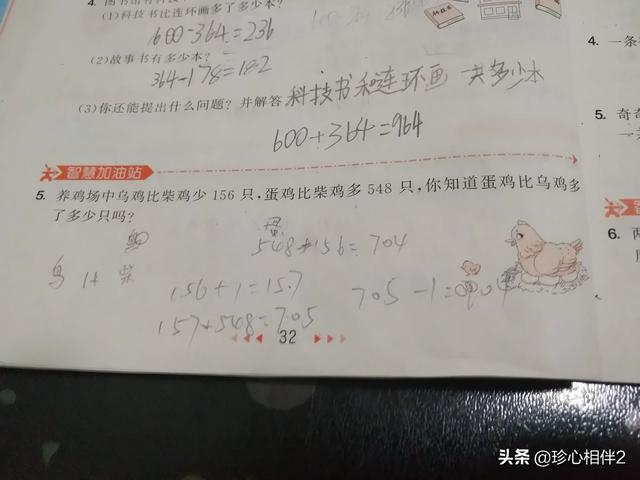 (1)科技书比连环画多了多少本?
600-364=236
(2)故事书有多少本?
364-178=182
(3)你还能提出什么问题?并解答 科技书和连环画一共多少本
600+364=964
智慧加油站
5. 养鸡场中乌鸡比柴鸡少 156 只,蛋鸡比柴鸡多 548 只,你知道蛋鸡比乌鸡多
了多少只吗?
蛋
548+156=704
乌 1+ 柴
156+1=157
705-1=704
157+548=705
32
4. 一条
5. 奇奇
6. 两
头条 @珍心相伴2